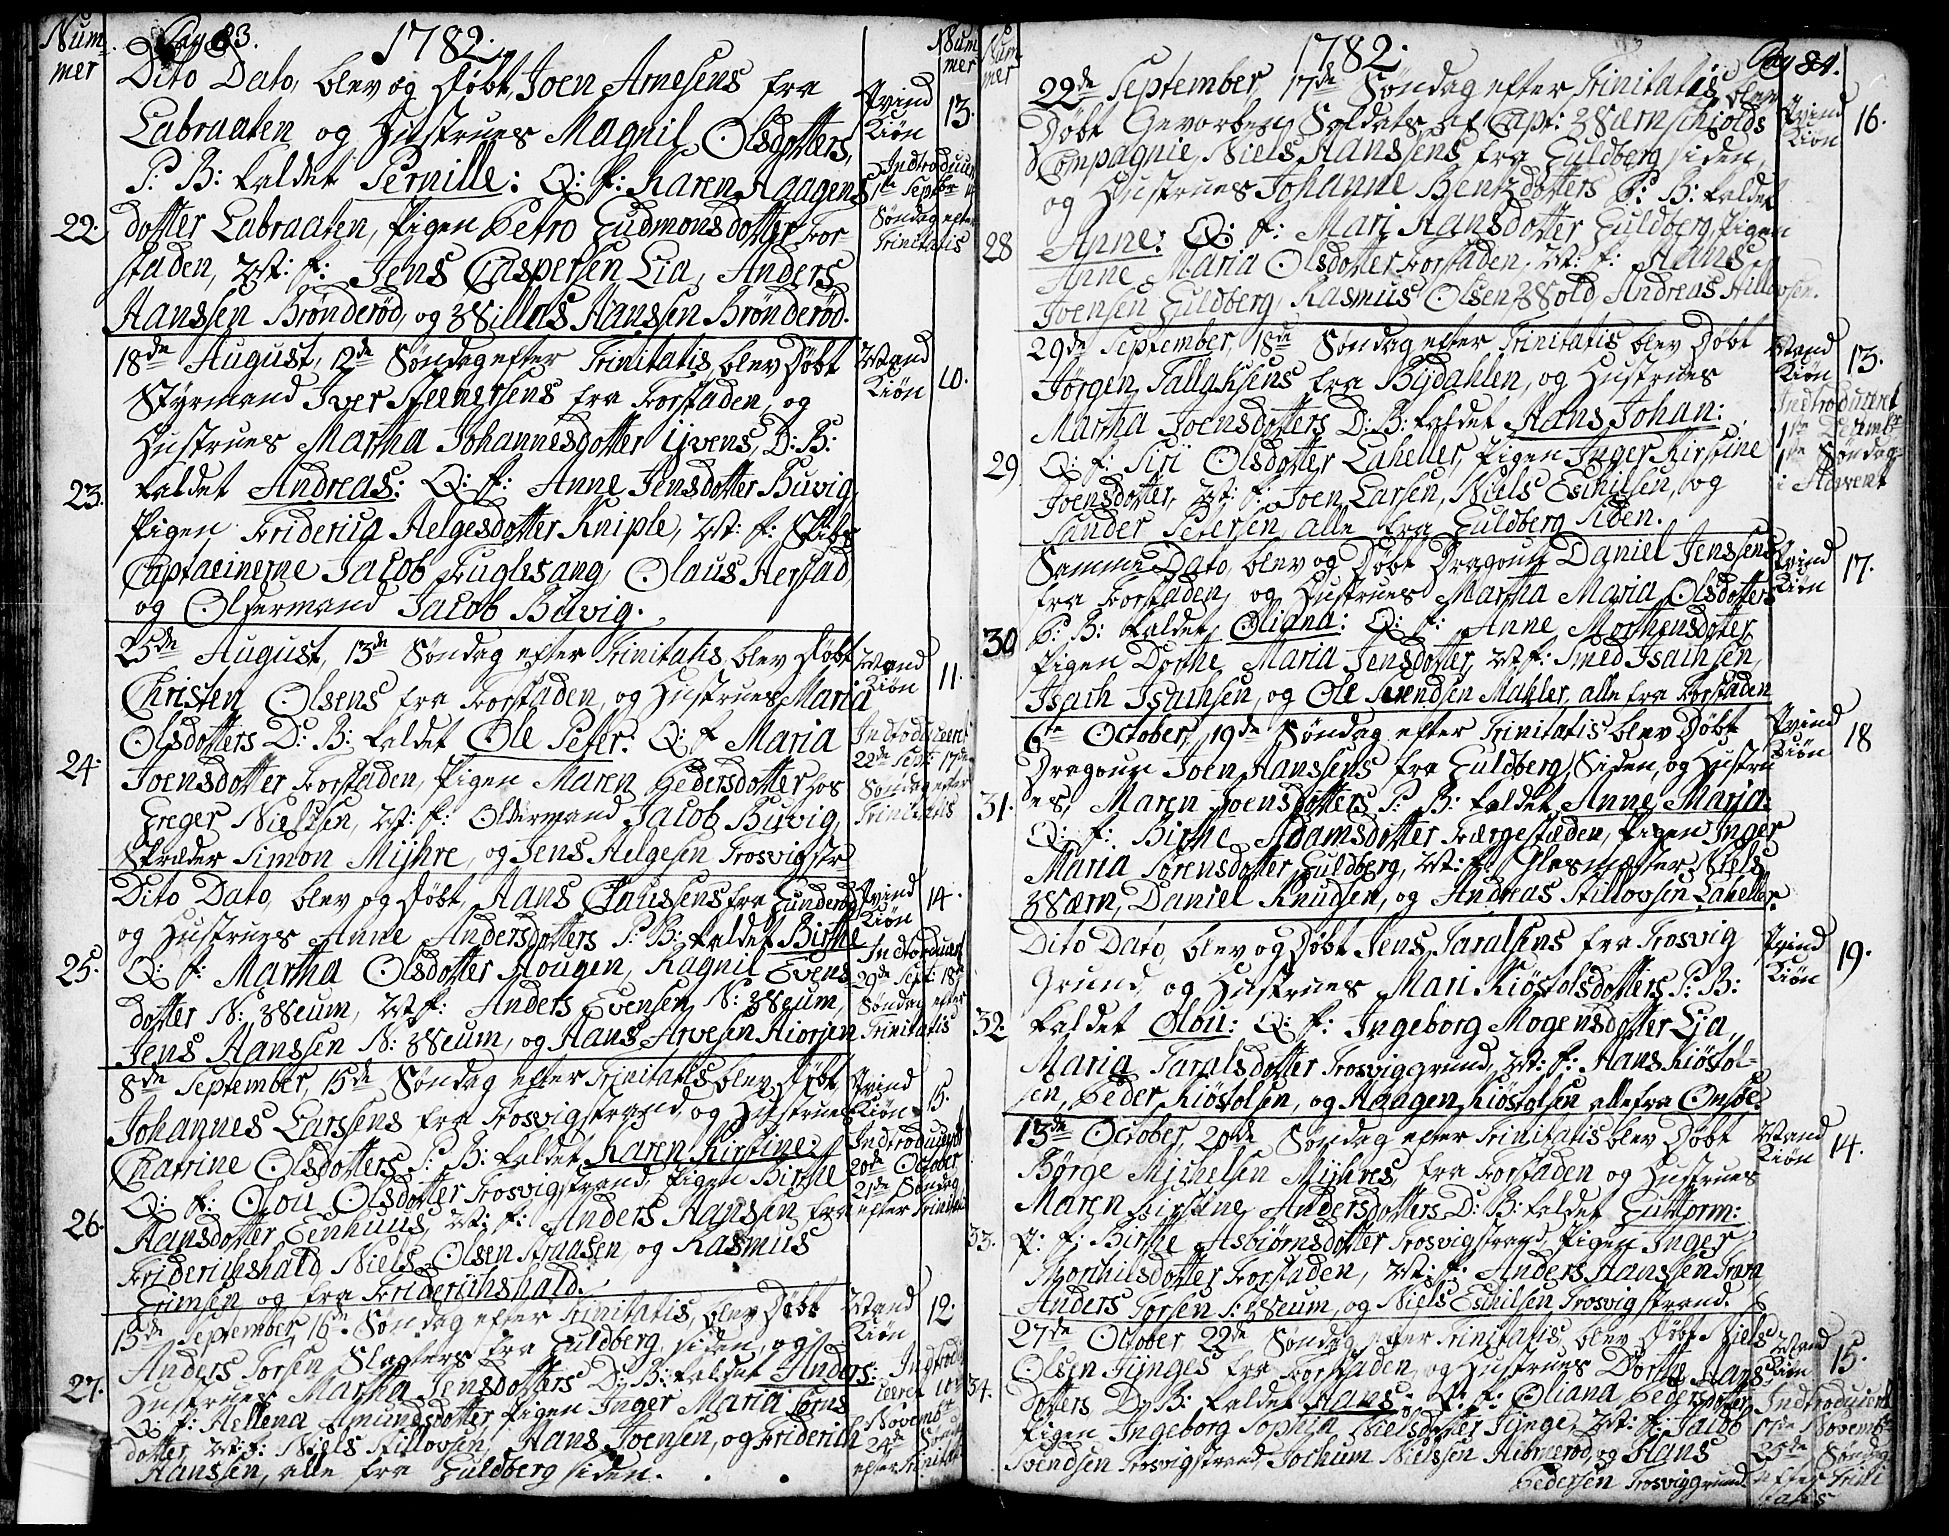 Num-
mer
Pag 83.
1782.
Num
mer
Dito Dato, blev og Døbt, Joen Arnesens fra
Labraaten og Hustrues Magnil Olsdotters,
P: B: kaldet Pernille: Q: f: Karen Haagens
22. dotter Labraaten, Pigen Petro Gudmonsdotter For-
staden, M: f: Jens Caspersen Lia, Anders
Hanssen Brønderød, og Willas Hanssen Brønderød.
Qvind
Kiøn 13.
Indtroducer
1ste Septbr
Søndag efter
Trinitatis
18de August, 12de Søndag efter Trinitatis, blev Døbt
Styrmand Iver Steenersens fra Forstaden, og
Hustrues Martha Johannesdotter Ijvens, D: B:
23. kaldet Andreas: Q: f: Anne Jensdotter Buvig,
Pigen Friderica Helgesdotter Kniple, M: f: Skibs
Captaeinerne Jacob Fuglesang, Olaus Herstad
og Oldermand Jacob Buvig.
Mand
Kiøn 10.
25de August, 13de Søndag efter Trinitatis, blev Døbt
Christen Olsens fra Forstaden, og Hustrues Maria
Olsdotters D: B: kaldet Ole Peter: Q: f Maria
24. Joensdotter Forstaden, Pigen Maren Pedersdotter hos
Greger Nielssen, M: f: Oldermand Jacob Buvig,
Skræder Simon Mijhre, og Jens Helgesen Trosvigstr
Mand
Kiøn 11.
Indtroduceret
22de Sept: 17de
Søndag efter
Trinitatis
Dito Dato, blev og Døbt, Hans Claussens fra Gunderød
og Hustrues Anne Andersdotters P: B: kaldet Birthe
25. Q: f: Martha Olsdotter Hougen, Ragnil Evens
dotter N: Weum, M: f: Anders Evensen N: Weum,
Jens Hanssen N: Weum, og Hans Arvesen Hiorsen
Qvind
Kiøn 14.
Indtroducert
29de Sept: 18de
Søndag efter
Trinitatis
8de September, 15de Søndag efter Trinitatis blev Døbt
Johannes Larssens fra Trosvigstrand, og Hustrues
Chatrine Olsdotters P: B: kaldet Karen Kirstine:
Q: f: Olou Olsdotter Trosvigstrand, Pigen Birthe
26. Hansdotter Eenhuus, M: f: Anders Hansen fra
Friderichshald, Niels Olsen Struasen, og Rasmus
Grimsen og fra Friderichshald.
Qvind
Kiøn 15.
Indtroduceret
20de October
21de Søndag
efter Trinitat
15de September, 16de Søndag efter Trinitatis, blev Døbt
Anders Torsen Slagters fra Guldberg siden, og
27. Hustrues Martha Jensdotters D: B: kaldet Anders:
Q: f: Hellena Amundsdotter Pigen Inger Maria Sørns
dotter, M: f: Niels Stillovsen, Hans Joensen, og Friderich
Hanssen, alle fra Guldberg siden.
Mand
Kiøn 12.
Indtrodu
ceret 10de
Novembr
24de Søndag
efter Trinitat
Num
mer
1782.
Pag 84.
22de September, 17de Søndag efter Trinitatis blev
Døbt Gevorben Soldats af Capt: Wærnschiolds
Compagnie, Niels Hanssens fra Guldberg siden,
og Hustrues Johanne Bentzdotters P: B: kaldet
28 Anne: Q: f: Mari Hansdotter Guldberg, Pigen
Anne Maria Olsdotter Forstaden, M: f: Hans
Joensen Guldberg, Rasmus Olsen Wold, Andreas Stillovsen.
Qvind
Kiøn 16.
29de September, 18de Søndag efter Trinitatis blev Døbt
Jørgen Tallaksens fra Bijdahlen, og Hustrues
Martha Joensdotters D: B: kaldet Hans Johan:
29 Q: f: Siri Olsdotter Laheller, Pigen Inger Kirstine
Joensdotter, M: f: Joen Larsen, Niels Eschilsen, og
Sander Petersen alle fra Guldberg Siden.
Mand
Kiøn 13.
Indtroduceret
1ste Decembr
1ste Søndag
i Advent
Samme Dato, blev og Døbt Dragoun Daniel Jenssens
fra Forstaden, og Hustrues Martha Maria Olsdotters
30 P: B: kaldet Oliana: Q: f: Anne Morthensdotter
Pigen Dorthe Maria Jensdotter, M: f: Smed Isachsen,
Isach Isachsen, og Ole Svendsen Mahler, alle fra Forstaden
Qvind
Kiøn 17.
6te October, 19de Søndag efter Trinitatis blev Døbt
Dragoun Joen Hanssens fra Guldberg Siden, og Hustru
31. es, Maren Joensdotters P: B: kaldet Anne Maria:
Q: f: Birthe Adamsdotter Færgestæden, Pigen Inger
Maria Sørensdotter Guldberg, M: f: Glasmæster Niels
Wærn, Daniel Knudsen, og Andreas Stillovsen Laheller.
Qvind
Kiøn 18
Dito Dato, blev og Døbt Jens Taralsens fra Trosvig
Grund, og Hustrues Mari Kiøstolsdotters P: B:
32. kaldet Olou: Q: f: Ingeborg Mogensdotter Lia,
Maria Taralsdotter Trosviggrund, M: f: Hans Kiøstol-
sen, Peder Kiøstolsen, og Haagen Kiøstolsen alle fra Onsøe.
Qvind
Kiøn 19.
13de October, 20de Søndag efter Trinitatis blev Døbt
Børge Mjchelsen Mijhres, fra Forstaden og Hustrues
Maren Kirstine Andersdotters D: B: kaldet Guttorm:
33. Q: f: Birthe Asbiørnsdotter Trosvigstrand, Pigen Inger
Thorchilsdotter Forstaden, M: f: Anders Hanssen
Anders Torsen S: Weum, og Niels Eschilsen Trosvigstrand.
Mand
Kiøn 14.
27de October 22de Søndag efter Trinitatis, blev Døbt Niels
Olsen Tijnges fra Forstaden, og Hustrues Dorthe Hans
34. dotters D: B: kaldet Hans: Q: f: Oliana Pedersdotter,
Pigen Ingeborg Sophia Nielsdotter Tijnge, M: f: Jacob
Svendsen Trosvigstrand, Jochum Nielssen Humerød, og Hans
Pedersen Trosviggrund.
Mand
Kiøn 15.
Indtroduceret
17de Novembr
25de Søndag
efter Trini
tatis